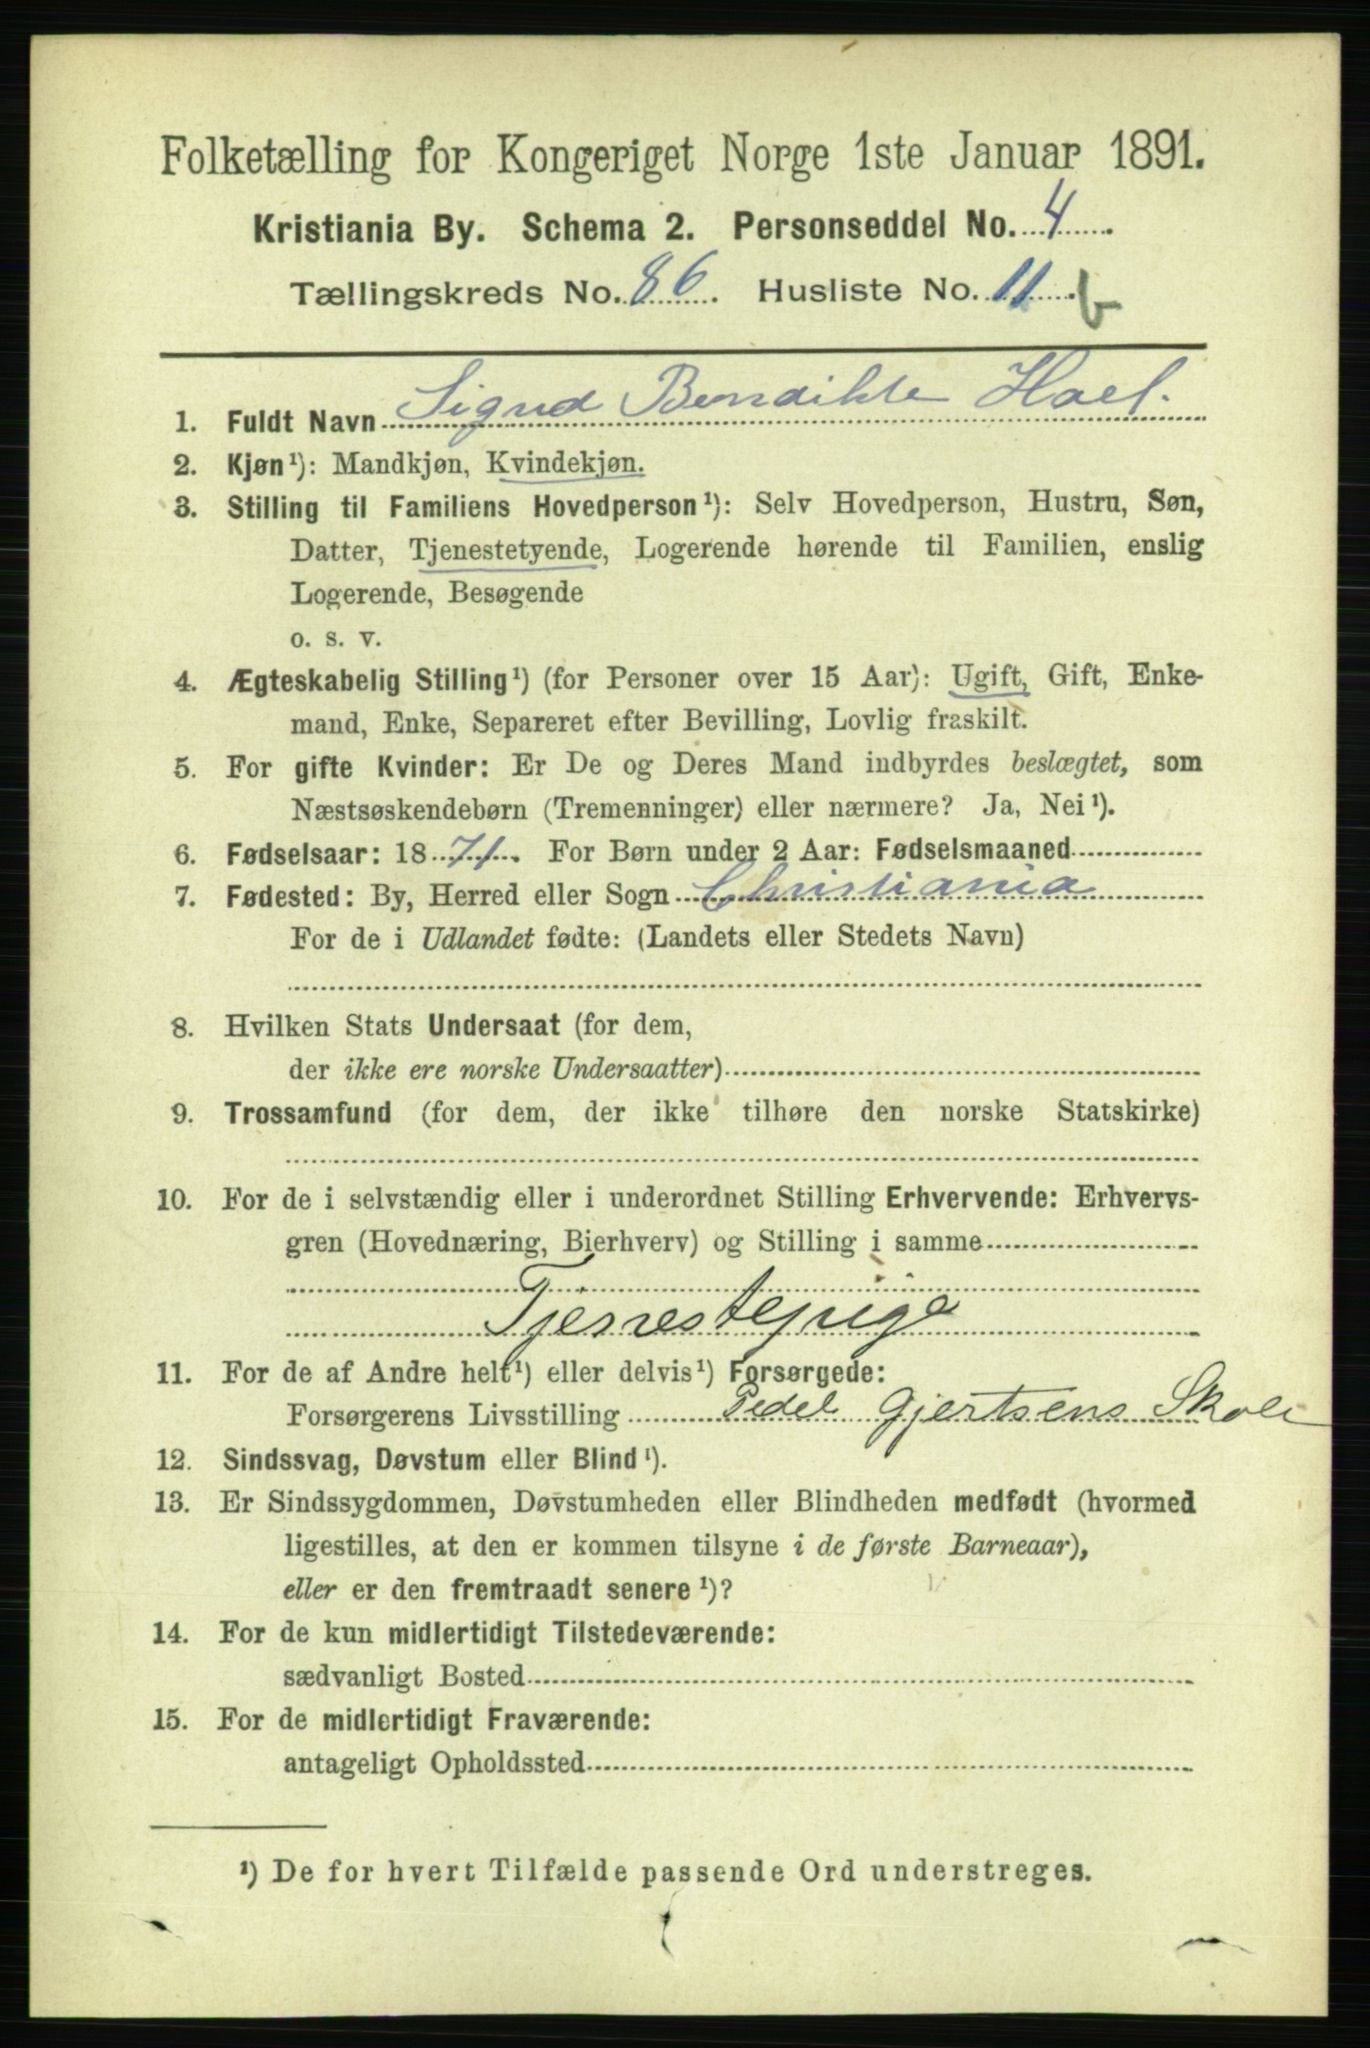 Folketælling for Kongeriget Norge 1ste Januar 1891.
Kristiania By. Schema 2. Personseddel No. 4.
Tællingskreds No. 86. Husliste No. 11. b
1. Fuldt Navn Sigrid Bendikte Hoel.
2. Kjøn¹): Mandkjøn, Kvindekjøn.
3. Stilling til Familiens Hovedperson¹): Selv Hovedperson, Hustru, Søn,
Datter, Tjenestetyende, Logerende hørende til Familien, enslig
Logerende, Besøgende
o. s. v.
4. Ægteskabelig Stilling¹) (for Personer over 15 Aar): Ugift, Gift, Enke-
mand, Enke, Separeret efter Bevilling, Lovlig fraskilt.
5. For gifte Kvinder: Er De og Deres Mand indbyrdes beslægtet, som
Næstsøskendebørn (Tremenninger) eller nærmere? Ja, Nei¹).
6. Fødselsaar: 1871. For Børn under 2 Aar: Fødselsmaaned
7. Fødested: By, Herred eller Sogn Christiania
For de i Udlandet fødte: (Landets eller Stedets Navn)
8. Hvilken Stats Undersaat (for dem,
der ikke ere norske Undersaatter)
9. Trossamfund (for dem, der ikke tilhøre den norske Statskirke)
10. For de i selvstændig eller i underordnet Stilling Erhvervende: Erhvervs-
gren (Hovednæring, Bierhverv) og Stilling i samme
Tjenestepige
11. For de af Andre helt¹) eller delvis¹) Forsørgede:
Forsørgerens Livsstilling Pedel Gjertsens Skole
12. Sindssvag, Døvstum eller Blind¹).
13. Er Sindssygdommen, Døvstumheden eller Blindheden medfødt (hvormed
ligestilles, at den er kommen tilsyne i de første Barneaar),
eller er den fremtraadt senere¹)?
14. For de kun midlertidigt Tilstedeværende:
sædvanligt Bosted
15. For de midlertidigt Fraværende:
antageligt Opholdssted
¹) De for hvert Tilfælde passende Ord understreges.